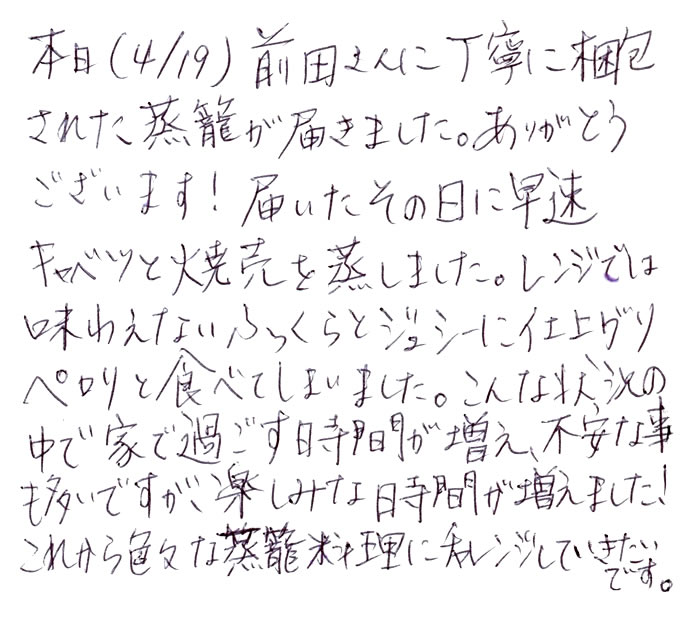 本日(4/19)前田さんに丁寧に梱包
された蒸籠が届きました。ありがとう
ございます!届いたその日に早速
キャベツと焼売を蒸しました。レンジでは
味わえないふっくらとジューシーに仕上がり
ペロリと食べてしまいました。こんな状況の
中で家で過ごす時間が増え、不安な事
も多いですが、楽しみな時間が増えました!
これから色々な蒸籠料理にチャレンジしていきたい
です。